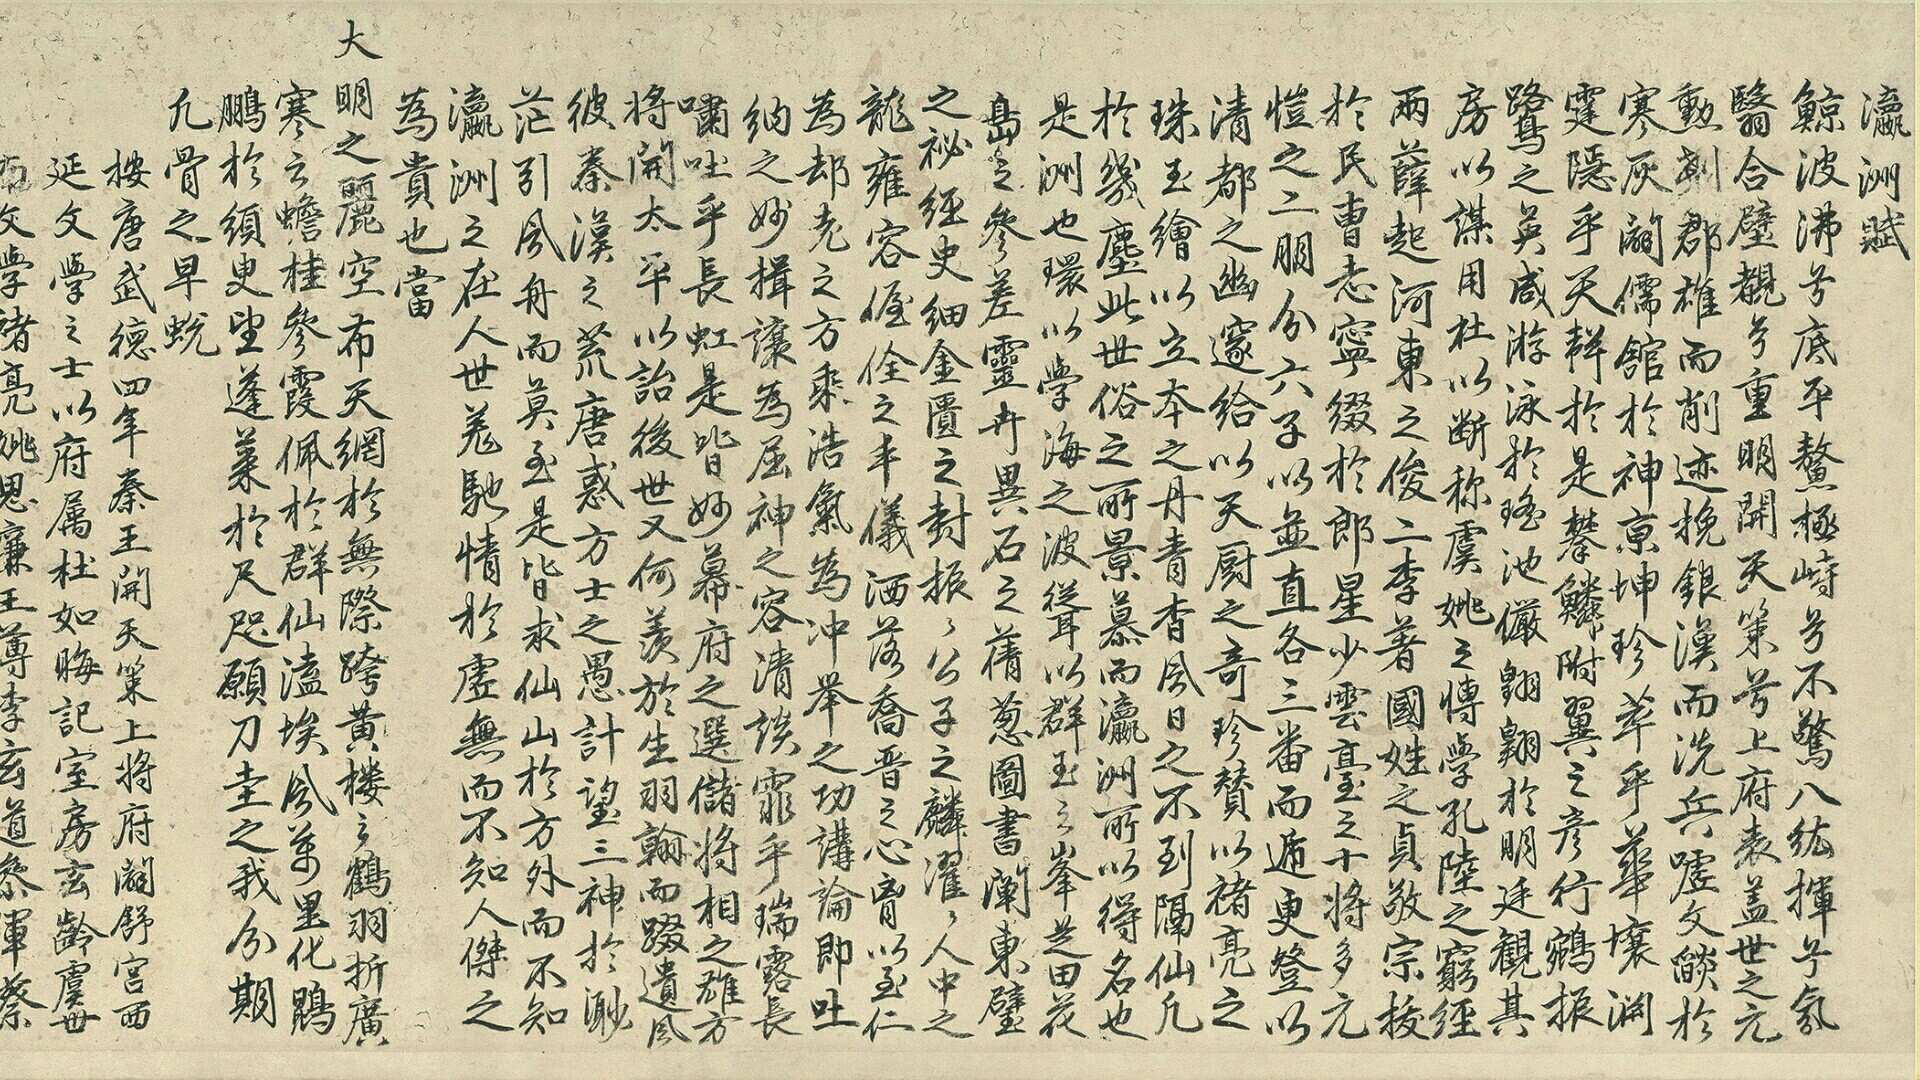 瀛洲賦
鯨波沸兮底平鰲極峙兮不驚八紘揮兮氛
翳合璧覩兮重明開天策兮上府表蓋世之元
勳剗郡雄而削迹挽銀漢而洗兵噓文燄於
寒灰闢儒館於神京坤珍萃乎華壤淵
霆隱乎天韜於是攀鱗附翼之彥行鵷振
鷺之英咸游泳於瑤池儼翱翔於明廷觀其
房以謀用杜以斷称虞姚之博學孔陸之窮經
兩薛起河東之俊二李著國姓之貞敬宗拔
於民曹志寧綴於郎星少雲臺之十將多元
愷之二朋分六子以並直各三番而遞更登以
清都之幽邃給以天厨之奇珍贊以褚亮之
珠玉繪以立本之丹青杳風日之不到隔仙凡
於幾塵此世俗之所景慕而瀛洲所以得名也
是洲也環以學海之波聳以群玉之峯芝田花
島之參差靈卉異石之蒨葱圖書闌東壁
之祕經史細金匱之封振〻公子之麟濯〻人中之
龍雍容偓佺之丰儀洒落喬晋之心胷以至仁
為却老之方乘浩氣為冲举之功講論即吐
納之妙揖讓為屈神之容清談霏乎瑞露長
嘯吐乎長虹是皆妙幕府之選儲將相之雄方
将開太平以詒後世又何羨於生羽翰而躡遺風
彼秦漢之荒唐惑方士之愚計望三神於渺
茫引風舟而莫至是皆求仙山於方外而不知
瀛洲之在人世羌馳情於虛無而不知人傑之
為貴也當
大明之麗空布天網於無際跨黃樓之鶴羽折廣
寒之蟾桂參霞佩於群仙溘埃風萬里化鵾
鵬於須臾望蓬萊於尺咫願刀圭之我分期
凡骨之早蛻
按唐武德四年秦王開天策上将府闢舒宮西
延文學之士以府属杜如晦記室房玄齡虞世
南文學褚亮姚思廉王蓴李玄道參軍蔡